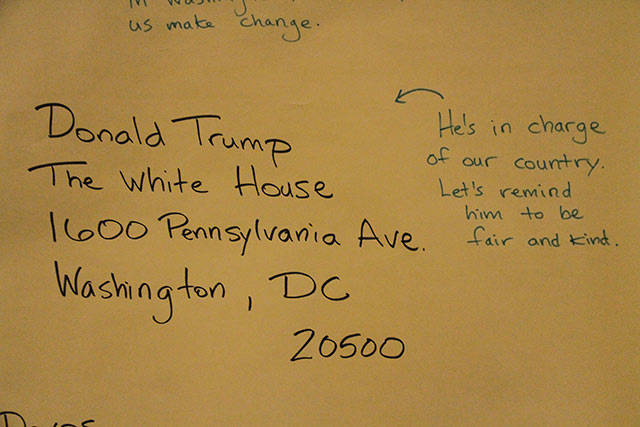 us make change.
Donald Trump
The White House
1600 Pennsylvania Ave.
Washington, DC
20500
He's in charge
of our country.
Let's remind
him to be
fair and kind.